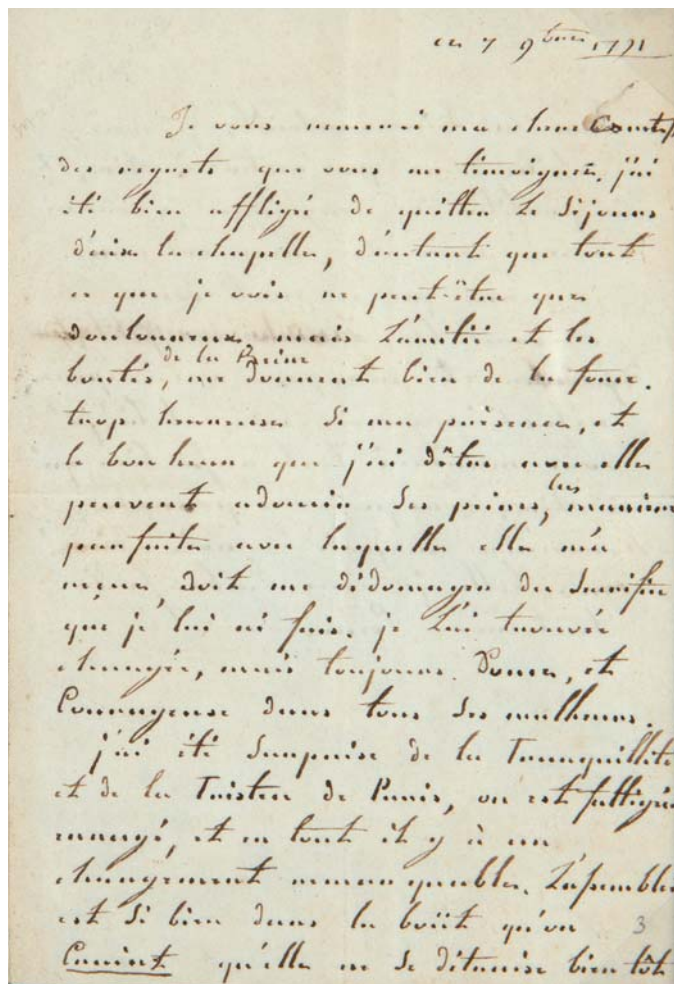 ce 7 9bre 1791
Je vous remerci ma chere Comtess
des regrets que vous me temoignez. j'ai
été bien affligé de quitter Le Séjour
d'aix la chapelle, d'autant que tout
ce que je vois ne peut-être que
douloureux. mais L'amitié et les
bontés, de la Reine me donnent bien de la force.
trop heureuse Si ma présence, et
le bonheur que j'ai dêtre avec elle
peuvent adoucir Ses peines, la maniere
parfaite avec laquelle elle m'a
recue, doit me dédomager du Sacrifice
que je lui ai fais. je L'ai trouvée
changée, mais toujours Douce, et
Courageuse dans tous Ses malheurs.
j'ai été Surprise de la Tranquillité
et de la Tristesse de Paris, on est fattigué
et en tout il y à un
changement remarquable. L'assemblée
est Si bien dans la boüe qu'on
Craint qu'elle ne Se détruise bientôt
3